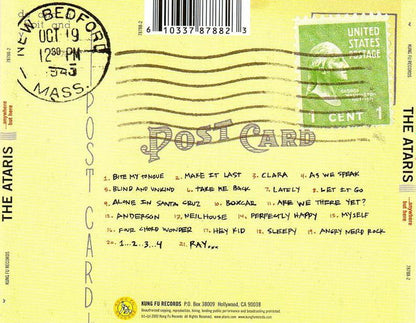 6 10337 87882 3
NEW BEDFORD
OCT 19
12 30 PM
MASS.
UNITED
STATES
POSTAGE
1 CENT 1
POST CARD
POST CARD
1. BITE MY TONGUE 2. MAKE IT LAST 3. CLARA 4. AS WE SPEAK
5. BLIND AND UNKIND 6. TAKE ME BACK 7. LATELY 8. LET IT GO
9. ALONE IN SANTA CRUZ 10. BOXCAR 11. ARE WE THERE YET?
12. ANDERSON 13. NEILHOUSE 14. PERFECTLY HAPPY 15. MYSELF
16. FOUR CHORD WONDER 17. HEY KID 18. SLEEPY 19. ANGRY NERD ROCK
20. 1...2...3...4 21. RAY...
KUNG FU RECORDS P.O. Box 38009 Hollywood, CA 90038
Unauthorized copying, reproduction, hiring, lending public performance and broadcasting prohibited.
All Rights Reserved.
THE ATARIS
...anywhere
but here
KUNG FU RECORDS
78788-2
THE ATARIS
...anywhere
but here
KUNG FU RECORDS
78788-2